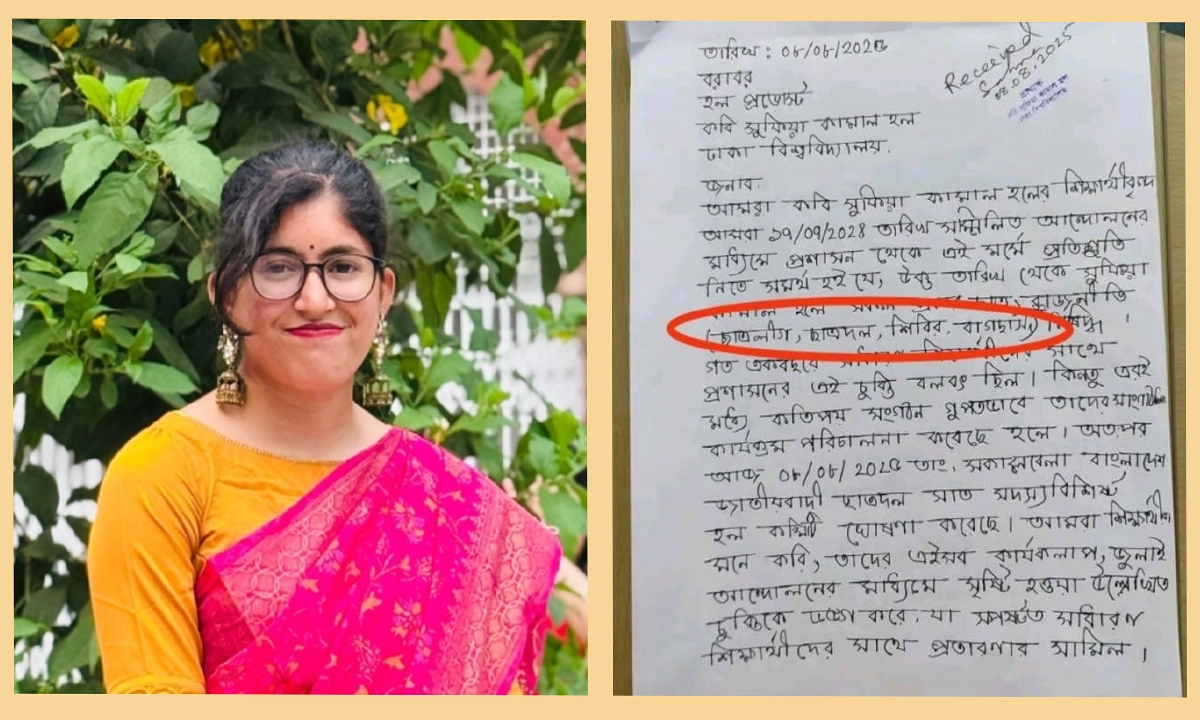 তারিখ : ০৮/০৮/২০২৫
বরাবর
হল প্রভোস্ট
কবি সুফিয়া কামাল হল
ঢাকা বিশ্ববিদ্যালয়.
জনাব.
আমরা কবি সুফিয়া কামাল হলের শিক্ষার্থীবৃন্দ
আমরা ১৭/০৭/২০২৪ তারিখ সম্মিলিত আন্দোলনের
মাধ্যমে প্রশাসন থেকে এই মর্মে প্রতিশ্রুতি
নিতে সমর্থ হই যে, উক্ত তারিখ থেকে সুফিয়া
কামাল হলে সকল রাজনীতি
(ছাত্রলীগ, ছাত্রদল, শিবির, বাগছাস) নিষিদ্ধ।
গত একবছরে সাধারণ শিক্ষার্থীদের সাথে
প্রশাসনের এই চুক্তি বলবৎ ছিল। কিন্তু এরই
মধ্যে কতিপয় সংগঠন গুপ্তভাবে তাদের সাংগঠনিক
কার্যক্রম পরিচালনা করেছে হলে। অতঃপর
আজ ০৮/০৮/২০২৫ তাং, সকালবেলা বাংলাদেশ
জাতীয়বাদী ছাত্রদল সাত সদস্যবিশিষ্ট
হল কমিটি ঘোষণা করেছে। আমরা শিক্ষার্থীরা
মনে করি, তাদের এইসব কার্যকলাপ, জুলাই
আন্দোলনের মাধ্যমে সৃষ্টি হওয়া উল্লেখিত
চুক্তিকে ভঙ্গ করে, যা স্পষ্টত সাধারণ
শিক্ষার্থীদের সাথে প্রতারণার সামিল।
Received
08.08.2025